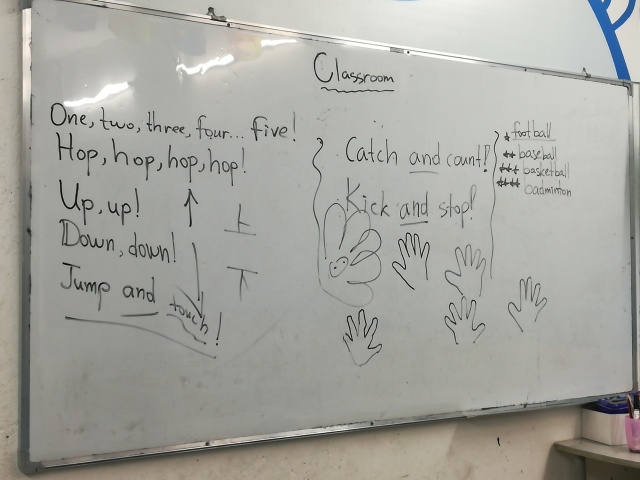 Classroom
One, two, three, four... five!
Hop, hop, hop, hop!
Up, up!
Down, down!
Jump and touch!
Catch and count!
Kick and stop!
football
baseball
basketball
badminton